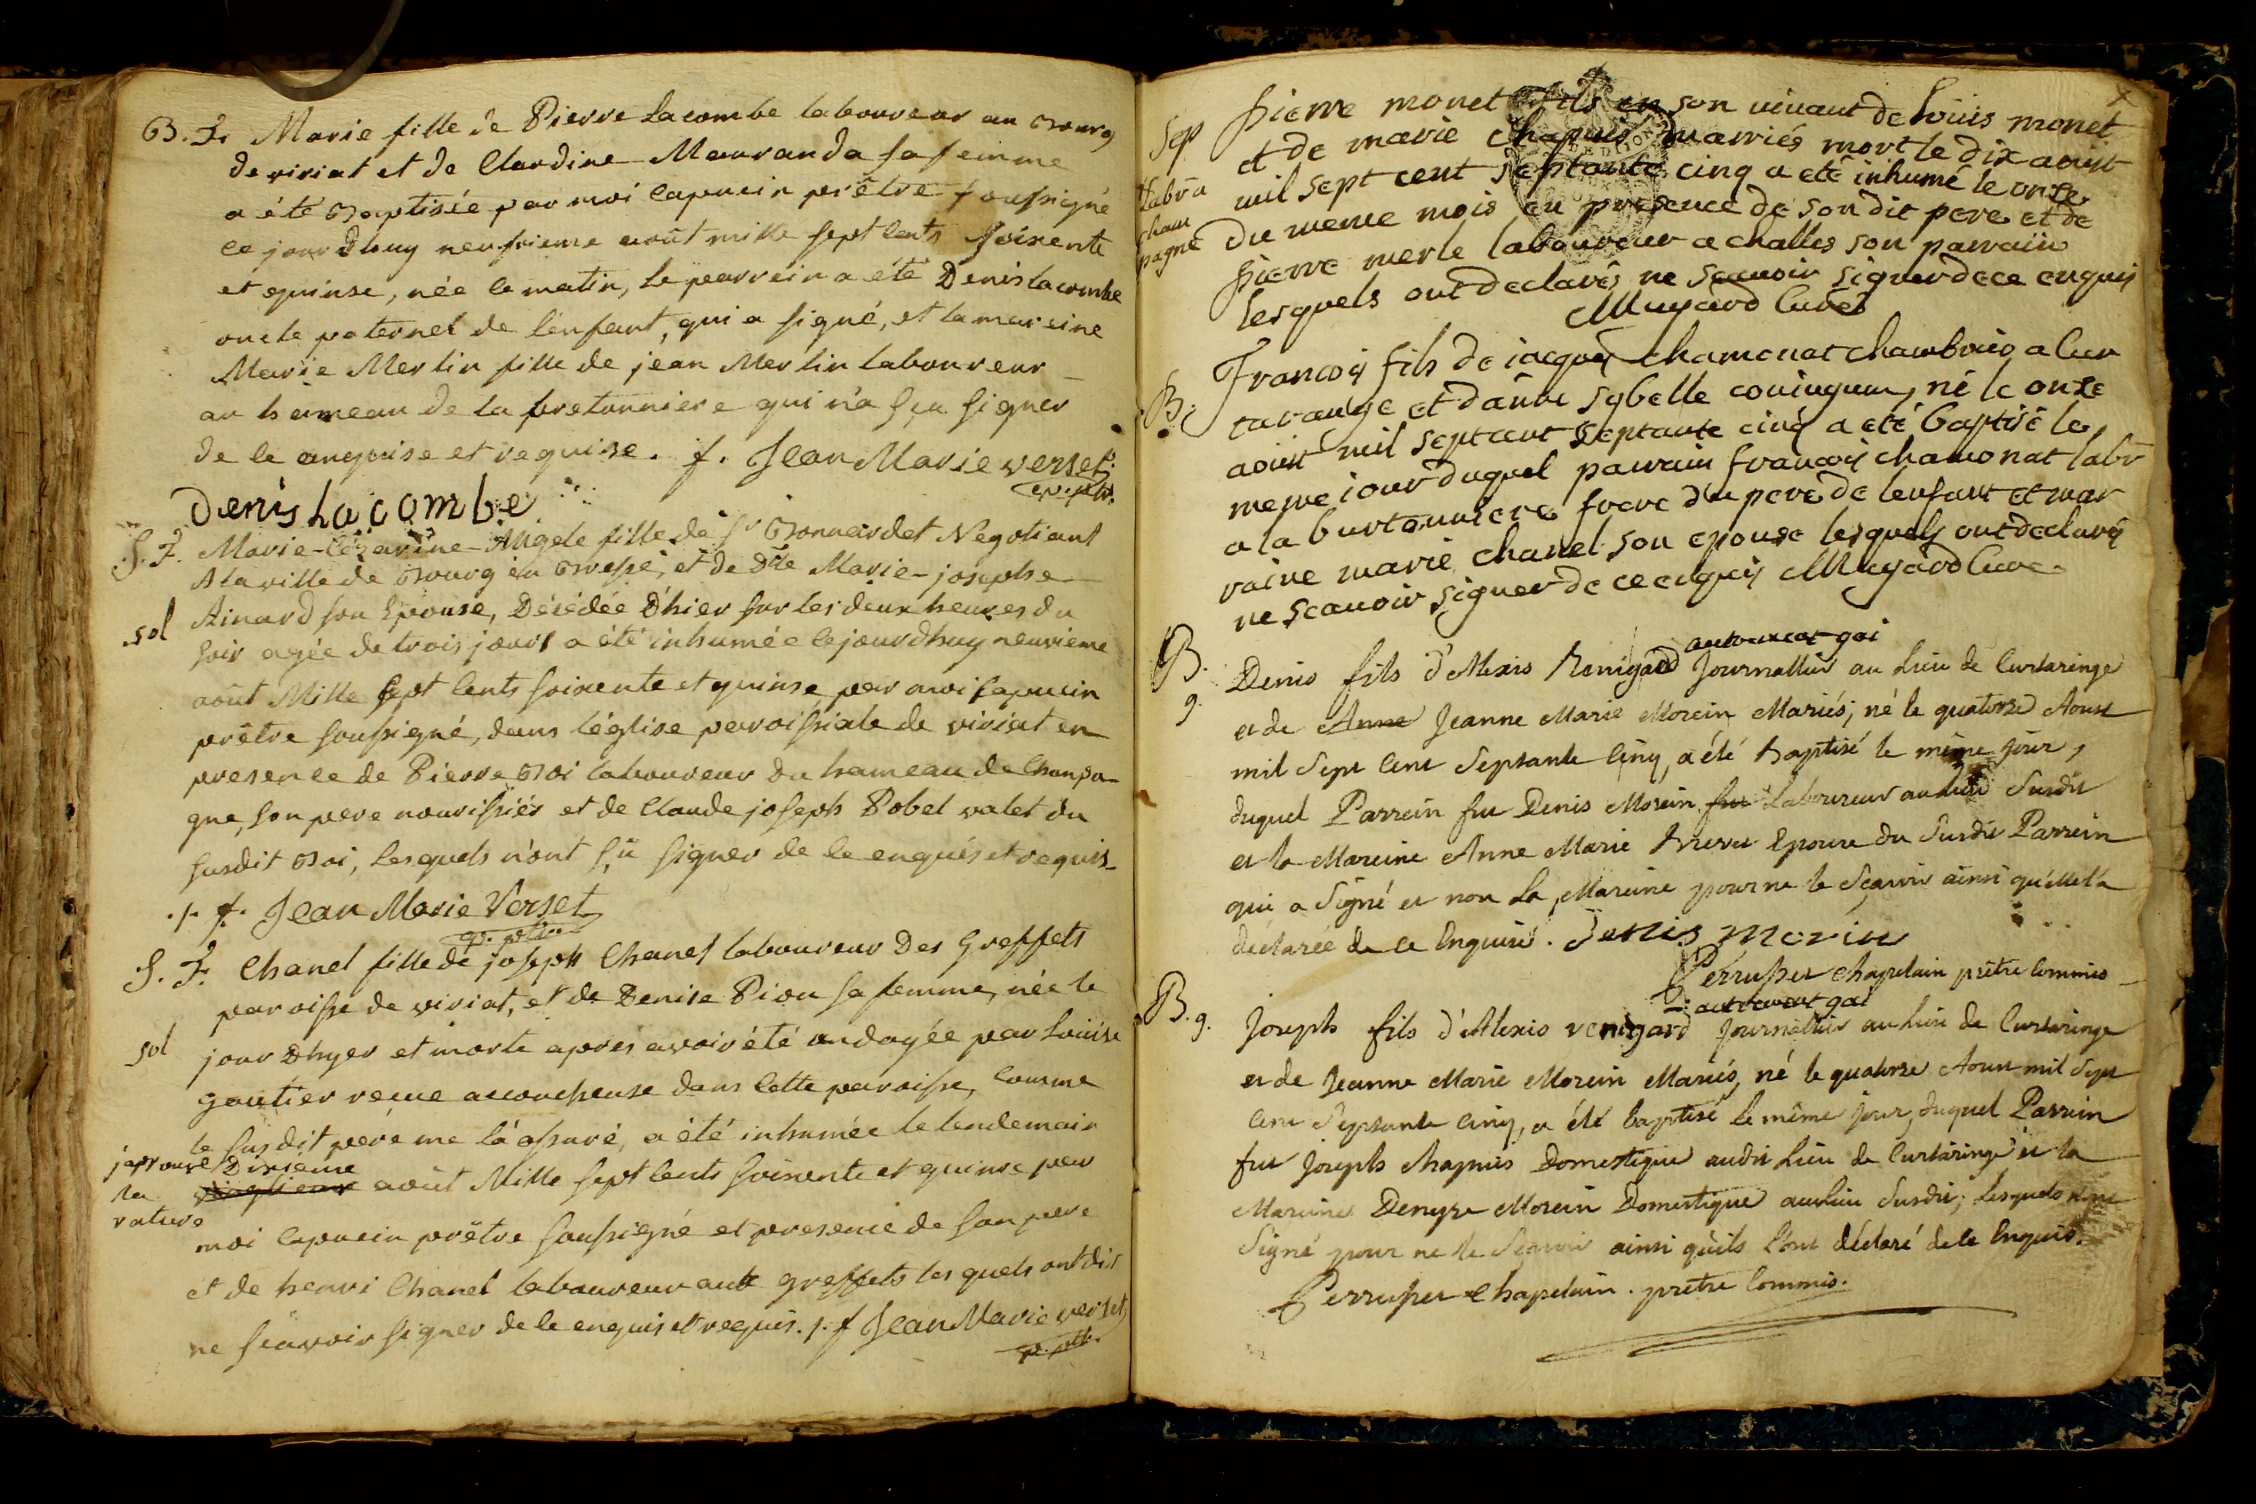 B. F. Marie fille de Pierre Lacombe laboureur au Bourg
de viriat et de Claudine Mauranda sa femme
a été Baptisée par moi Capucin prêtre soussigné
ce jourdhuy neufvieme août mille sept cents soixente
et quinse, née le matin, le parrein a été Denis Lacombe
oncle paternel de l'enfant, qui a signé, et la mareine
Marie Merlin fille de jean Merlin laboureur
au hameau de la bretonniere qui n'a sçu signer
de ce enquise et requise. f. Jean Marie verset
cp. ptr.
Denis Lacombe
S. F. Marie-Cézarine-Angele fille de Sr Bonnardet Négotiant
A la ville de Bourg en Bresse, et de Dlle Marie-josephe
sol Ainard son Epouse, Décédée D'hier sur les deux heures du
soir agée de trois jours a été inhumée ce jourdhuy neuvieme
août Mille sept cents soixente et quinse par moi Capucin
prêtre soussigné, dans l'église paroissiale de viriat en
presence de Pierre Boi laboureur du hameau de Champa-
gne, son pere nourissiér et de Claude joseph Pobel valet du
susdit Boi, lesquels n'ont sçü signer de ce enquis et requis_
./. f. Jean Marie Verset
cp. ptr.
S. F. Chanel fille de joseph Chanel laboureur Des Greffets
paroisse de viriat, et de Denise Piou sa femme, née le
sol jour D'hyer et morte aprés avoir été ondoyée par Louise
gautier reçue accoucheuse dans Cette paroisse, comme
le susdit pere me l'a assuré, a été inhumée le lendemain
japrouve Dixieme
la août Mille sept cents soixente et quinse par
rature
moi Capucin prêtre soussigné et presence de son pere
et de henri Chanel laboureur aux greffets lesquels ont dit
ne sçavoir signer de ce enquis et requis. ./. f Jean Marie verset
cp. ptr.
Sep. pierre monet fils en son vivant de Loüis monet
et de marie chapuis marriés mort le dix aoust
Labra mil sept cent septante cinq a eté inhumé le onze
cham du meme mois en presence de son dit pere et de
pagne pierre merle laboureur a challes son parrain
lesquels ont declarés ne sçauoir signer de ce enquis
Mugard Curé
B. François fils de iacques chamonat chambrier a Cur
tarange et d'anne sybelle coniugum, né le onze
aoust mil sept cent septante cinq a eté baptisé le
meme iour duquel parrain françois chamonat labr
a la burtonniere frere du pere de lenfant et mar
raine marie chanel son epouse lesquels ont declarés
ne scauoir signer de ce enquis Mugard Cure.
autrement goi
B. g. Denis fils d'Alexis Renigard Journallier au Lieu de Curtaringe
et de Anne Jeanne Marie Morein Mariés, né le quatorze Aoust
mil Sept Cent Septante Cinq, a été Baptisé le même jour,
duquel Parrein fut Denis Morein fut Laboureur au lieu Susdit
et la Mareine Anne Marie Brevet Epouse du Susdit Parrein
qui a Signé et non La Mareine pour ne le Sçavoir ainsi qu'elle l'a
déclarée de ce Enquise. Denis Morin
Perrusset Chapelain prêtre Commis
autrement goi
B. g. Joseph fils d'Alexis renigard Journallier au Lieu de Curtaringe
et de Jeanne Marie Morein Mariés, né le quatorze Aoust mil Sept
Cent Septante Cinq, a été baptisé le même jour, duquel Parrein
fut Joseph Chapuis Domestique audit Lieu de Curtaringe et la
Mareine Denyse Morein Domestique au Lieu Susdit; Lesquels n'ont
Signé pour ne le Sçavoir ainsi qu'ils l'ont déclaré de ce Enquis.
Perrusset Chapelain. prêtre Commis.